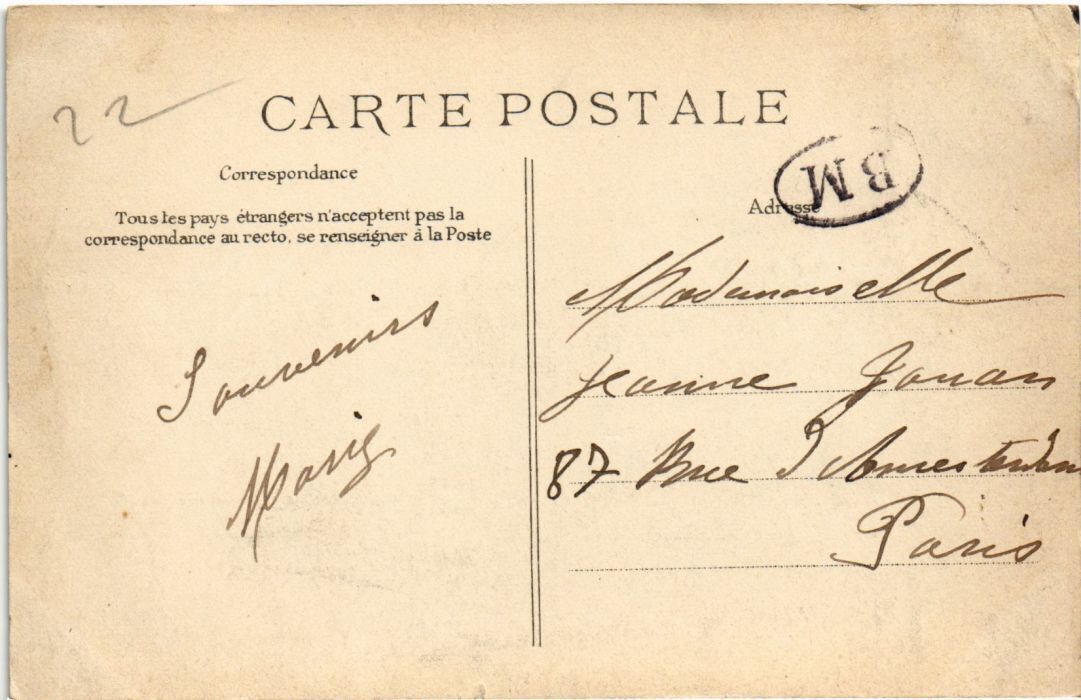 22
CARTE POSTALE
Correspondance
Tous les pays étrangers n'acceptent pas la
correspondance au recto, se renseigner à la Poste
Souvenirs
BM
Adresse
Mademoiselle
Jeanne Jouan
87 Rue d'Amsterdam
Paris